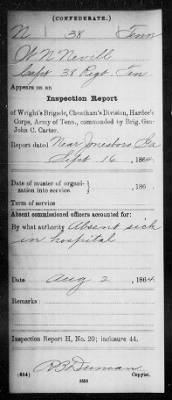 (CONFEDERATE.)
N 38 Tenn
W N Nevill
Capt 38 Regt. Ten
Appears on an
Inspection Report
of Wright's Brigade, Cheatham's Division, Hardee's
Corps, Army of Tenn., commanded by Brig. Gen.
John C. Carter.
Report dated Near Jonesboro Ga
Sept 16, 1864.
Date of muster of organi-
zation into service. 186 .
Term of service
Absent commissioned officers accounted for:
By what authority Absent sick
in hospital
Date Aug 2, 1864.
Remarks:
Inspection Report H, No. 20; inclosure 44.
R B Duncan
(634) Copyist.